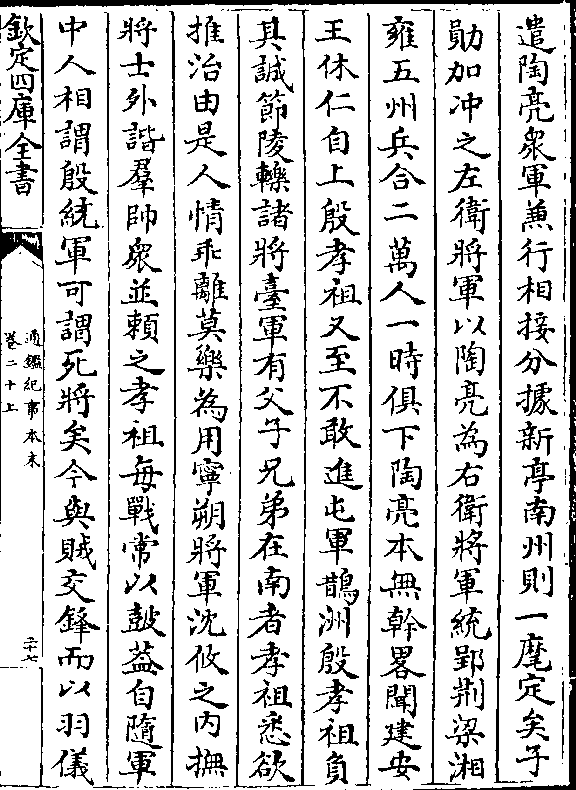 遣陶亮衆軍兼行相接分據新亭南州則一麾定矣子
勛加冲之左衛將軍以陶亮為右衛將軍統郢荆梁湘
雍五州兵合二萬人一時俱下陶亮本無幹畧聞建安
王休仁自上殷孝祖又至不敢進屯軍鵲洲殷孝祖負
其誠節陵轢諸將臺軍有父子兄弟在南者孝祖悉欲
推治由是人情乖離莫樂為用寧朔將軍沈攸之内撫
將士外諧羣帥衆並頼之孝祖每戰常以鼓葢自隨軍
中人相謂殷統軍可謂死將矣今與賊交鋒而以羽儀
欽定四庫全書
通鑑紀事本末
卷二十上
二十七